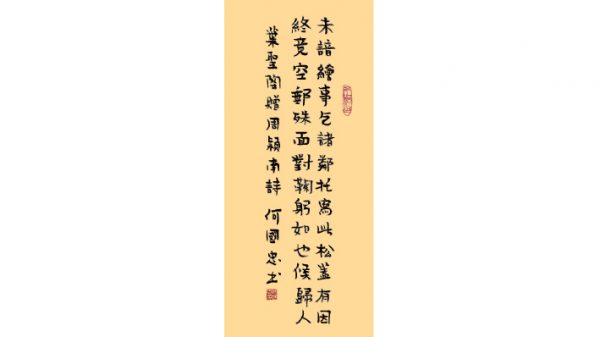 未諳繪事乞諸鄰托寫此松蓋有因
終竟空郵殊面對鞠躬如也候歸人
葉聖陶贈周穎南詩 何國忠書